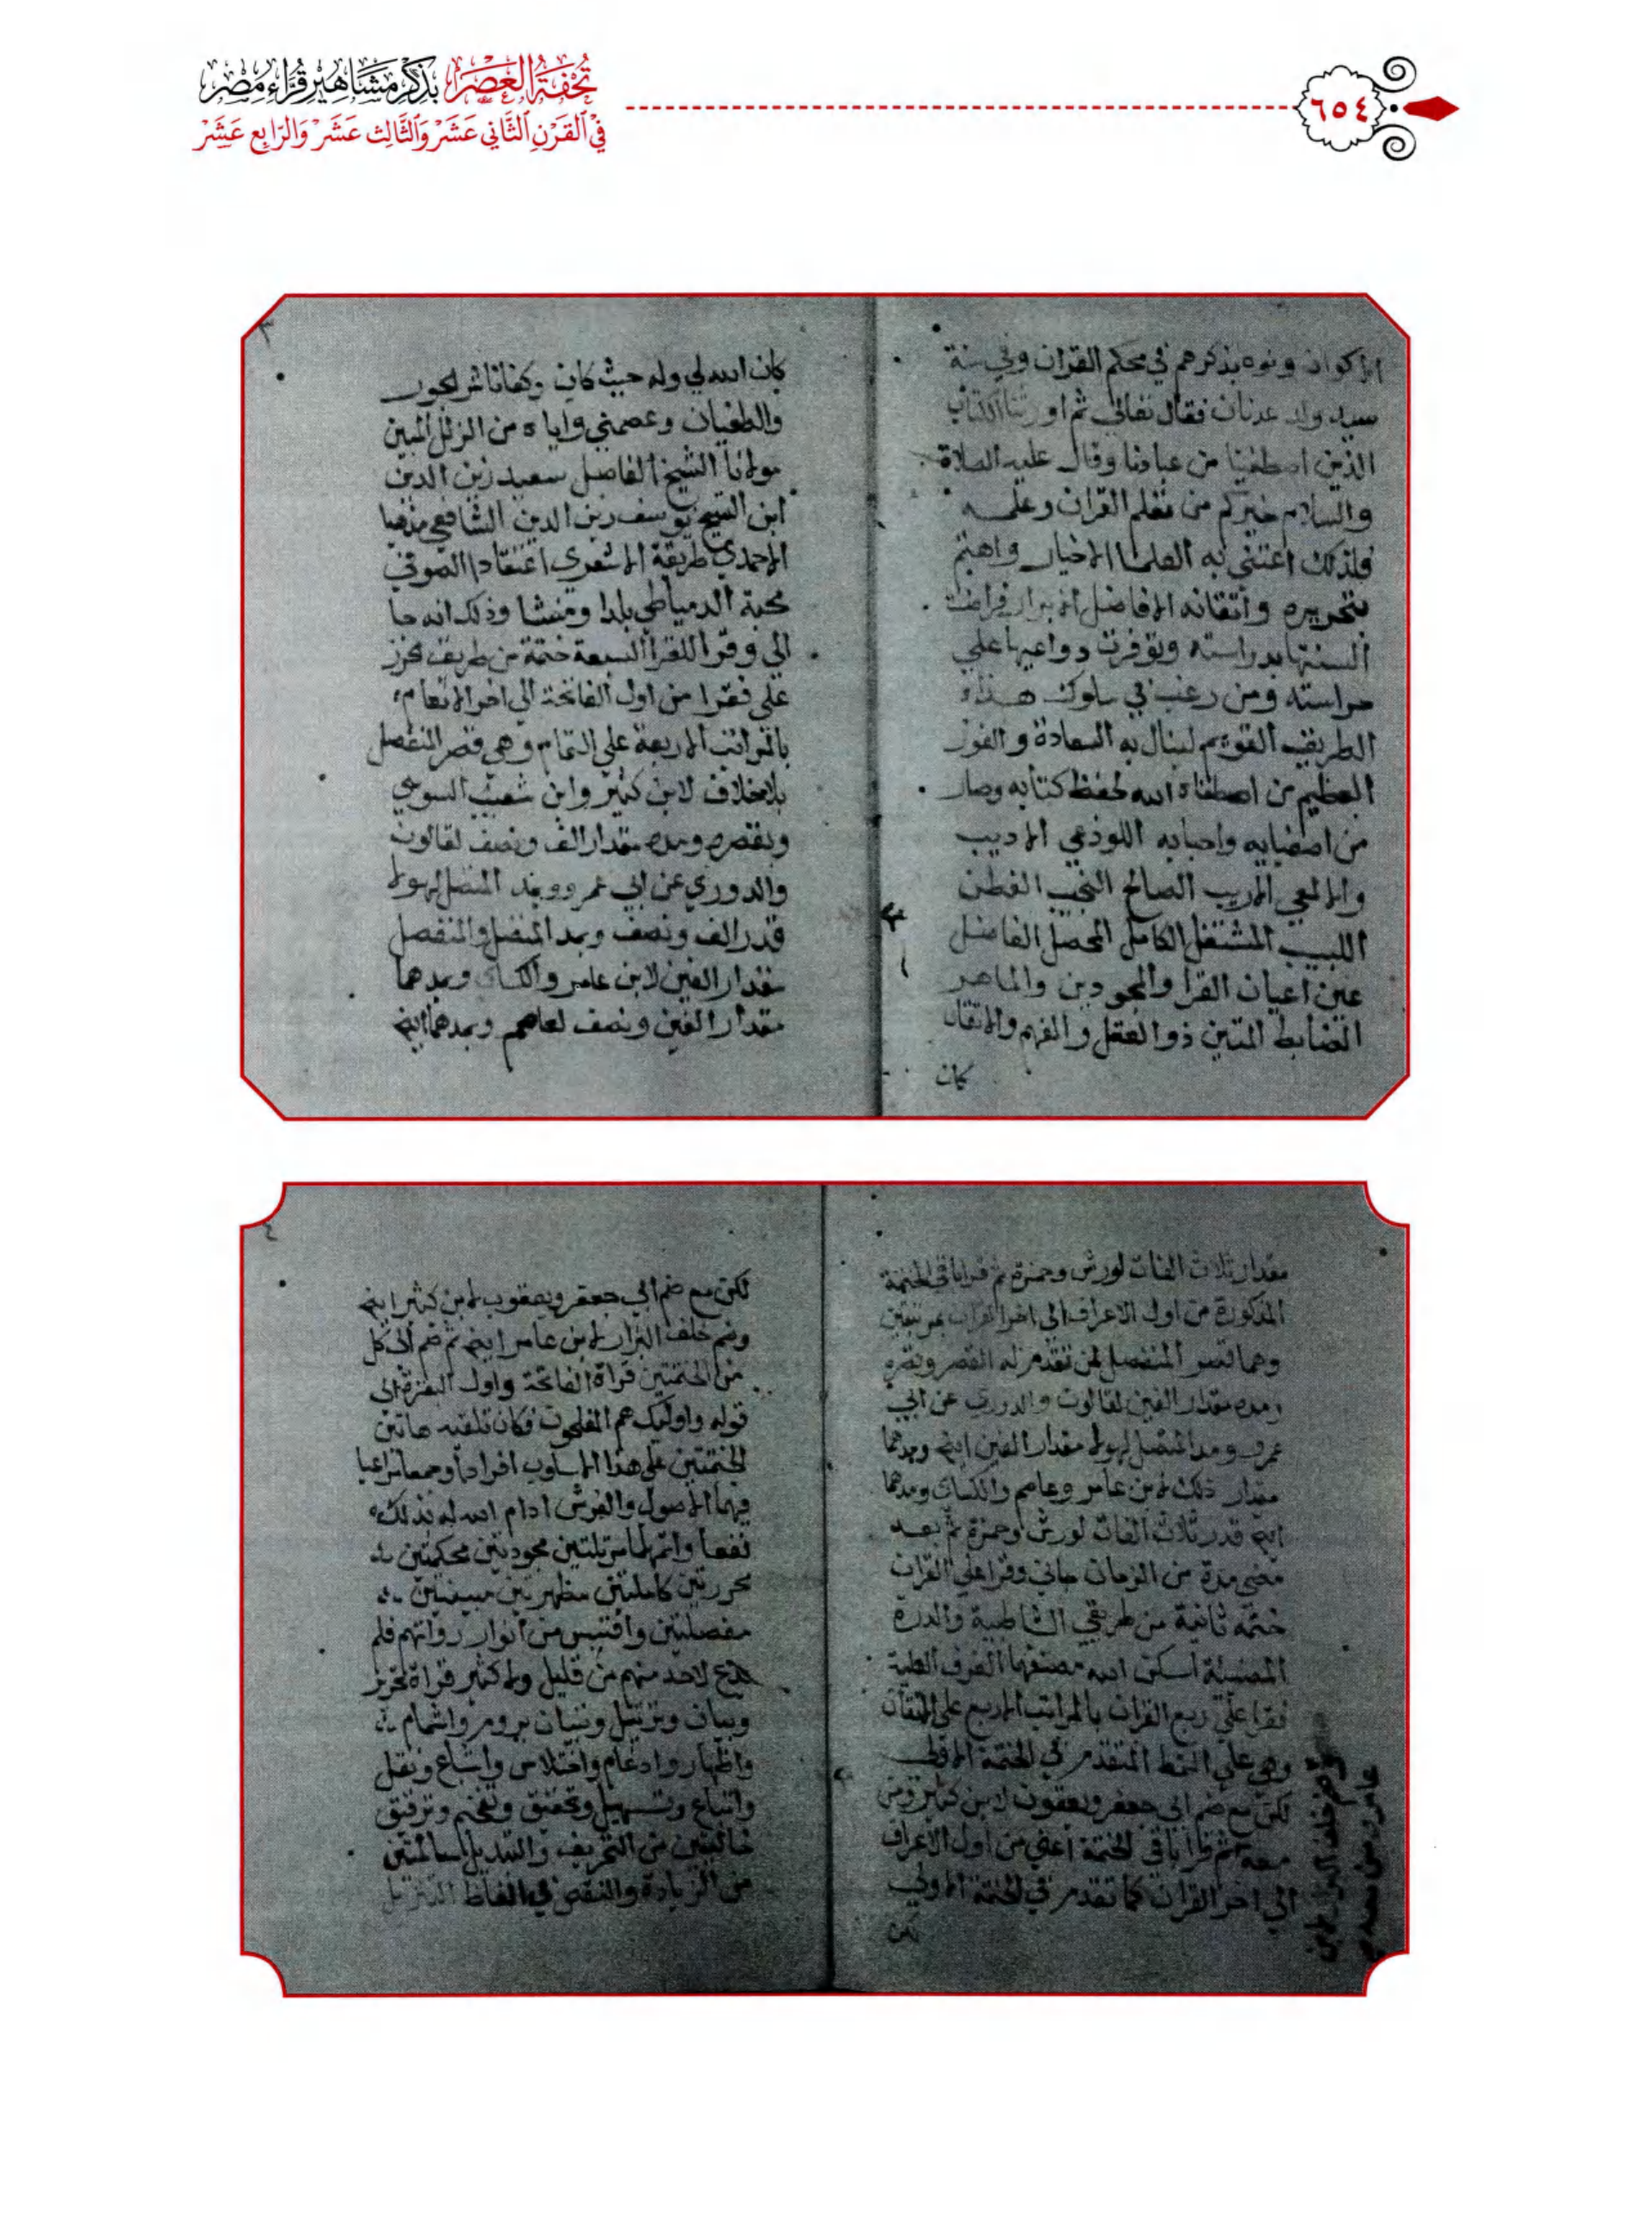 تُحْفَةُ الْعَصْرِ بِذِكْرِ مَشَاهِيرِ قُرَّاءِ مِصْرَ
فِي الْقَرْنِ الثَّانِي عَشَرَ وَالثَّالِث عَشَرَ وَالرَّابِع عَشَرَ
٦٥٤
الاكوان ونوه بذكرهم في محكم القران وفي سنة
سيد ولد عدنان فقال تعالي ثم اورثنا الكتاب
الذين اصطفينا من عبادنا وقال عليه الصلاة
والسلام خيركم من تعلم القران وعلمه
فلذلك اعتني به العلما الاخيار واهتم
بتحريره وأتقانه الافاضل الابرار فراضت
السنتها بدراسته وتوفرت دواعيها علي
حراسته ومن رغب في سلوك هذا
الطريق القويم لينال به السعادة والفوز
العظيم من اصطفاه الله لحفظ كتابه وصار
من اصفيايه واحبابه اللوذعي الاديب
والالمعي الاريب الصالح النجيب الفطن
اللبيب المشتغل الكامل المحصل الفاضل
عين اعيان القرا والمجودين والماهر
الضابط المتين ذو العقل والفهم والاتقان
كان
٣
كان الله لي وله حيث كان وكفانا شر الجور
والطغيان وعصمني واياه من الزلل المبين
مولانا الشيخ الفاضل سعيد زين الدين
ابن الشيخ يوسف زين الدين الشافعي مذهبا
الاحمدي طريقة الاشعري اعتقادا الصوفي
محبة الدمياطي بلدا ومنشا وذلك انه جا
الي وقرا للقرا السبعة ختمة من طريق الحرز
علي فقرا من اول الفاتحة الي اخر الانعام
بالمراتب الاربعة علي التمام وهي قصر المنفصل
بلا خلاف لابن كثير وابن شعيب السوسي
وبقصره ومده مقدار الف ونصف لقالون
والدوري عن ابي عمرو وبمد المتصل لهولا
قدر الف ونصف وبمد المتصل والمنفصل
مقدار الفين لابن عامر والكساي وبمدهما
مقدار الفين ونصف لعاصم وبمدهما ايض
مقدار ثلاث الفات لورش وحمزة ثم قرا باقي الختمة
المذكورة من اول الاعراف الي اخر القران بمرتبتين
وهما قصر المنفصل لمن تقدم له القصر وبقصره
ومده مقدار الفين لقالون والدوري عن ابي
عمرو ومد المتصل لهولا مقدار الفين ايض وبمدهما
مقدار ذلك لابن عامر وعاصم والكساي ومدهما
ايض قدر ثلاث الفات لورش وحمزة ثم بعد
مضي مدة من الزمان جاني وقرا علي القران
ختمه ثانية من طريقي الشاطبية والدرة
المضيئة اسكن الله مصنفها الغرف العلية
فقرا علي ربع القران بالمراتب الاربع علي الاتقان
وهي علي النمط المتقدم في الختمة الاولي
لكن مع ضم ابي جعفر ويعقوب لابن كثير ومن
معه ثم قرا باقي الختمة اعني من اول الاعراف
الي اخر القران كما تقدم في الختمة الاولي
لكن
وضم خلف البزار لابن
عامر ومن معه
٤
لكن مع ضم ابي جعفر ويعقوب لابن كثير ايض
وضم خلف البزار لابن عامر ايض ثم ضم الي كل
من الختمتين قراة الفاتحة واول البقرة الي
قوله واوليك هم المفلحون فكان تلقيه هاتين
الختمتين علي هذا الاسلوب افرادا وجمعا مراعيا
فيها الاصول والفرش ادام الله له بذلك
نفعا واتمهما مرتلتين مجودتين محكمتين
محررتين كاملتين مظهرتين مبينتين
مفصلتين واقتبس من انوار رواتهم فلم
يدع لاحد منهم من قليل ولا كثير قراة تحرير
وبيان وترتيل وتبيان بروم واشمام
واظهار وادغام واختلاس واشباع ونقل
واتباع وتسهيل وتحقيق وتفخيم وترقيق
خالصتين من التحريف والتبديل سالمتين
من الزيادة والنقص في الفاظ التنزيل